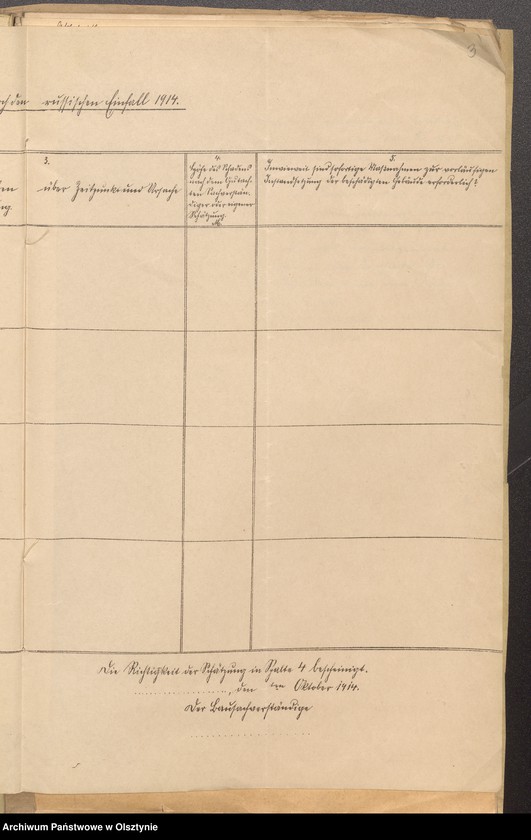 3
ch den russischen Einfall 1914.
3.
über Zeitpunkt und Ursache
4.
Höhe des Schadens
nach dem Gutach-
ten Sachverstän-
diger oder eigener
Schätzung.
M.
5.
Inwieweit sind sofortige Maßnahmen zur vorläufigen
Instandsetzung der beschädigten Gebäude erforderlich?
Die Richtigkeit der Schätzung in Spalte 4 bescheinigt.
...................., den ten Oktober 1914.
Der Bausachverständige
........................
Archiwum Państwowe w Olsztynie